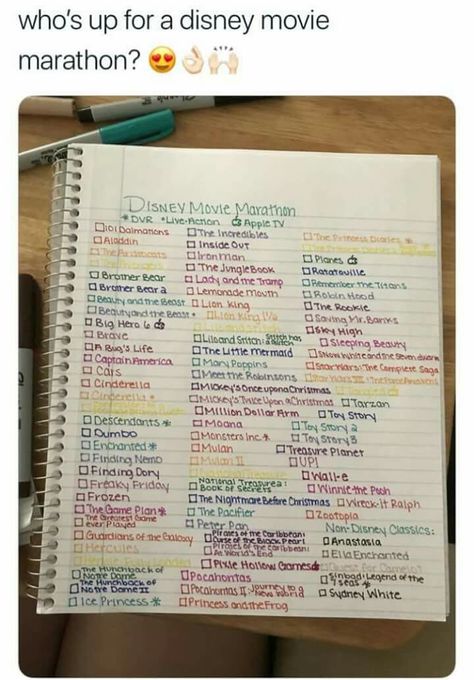 who's up for a disney movie
marathon? 😍👌🏻🙌🏻
DISNEY MOVIE MARATHON
*DVR *Live-Action Apple TV
101 Dalmations
Aladdin
The Aristocats
Brother Bear
Brother Bear 2
Beauty and the Beast
Beauty and the Beast *
Big Hero 6
Brave
A Bug's Life
Captain America
Cars
Cinderella
Cinderella *
Descendants *
Dumbo
Enchanted *
Finding Nemo
Finding Dory
Freaky Friday
Frozen
The Game Plan *
The Greatest Game
ever Played
Guardians of the Galaxy
Hercules
The Hunchback of
Notre Dame
The Hunchback of
Notre Dame II
Ice Princess *
The Incredibles
Inside Out
Iron Man
The Jungle Book
Lady and the Tramp
Lemonade Mouth
Lion King
Lion King 1½
Lilo and Stitch
Lilo and Stitch: Stitch has
a Glitch
The Little Mermaid
Mary Poppins
Meet the Robinsons
Mickey's Once upon a Christmas
Mickey's Twice Upon a Christmas
Million Dollar Arm
Moana
Monsters Inc. *
Mulan
Mulan II
National Treasure
National Treasure:
Book of Secrets
The Nightmare Before Christmas
The Pacifier
Peter Pan
Pirates of the Caribbean:
Curse of the Black Pearl
Pirates of the Caribbean:
At World's End
Pixie Hollow Games
Pocahontas
Pocahontas II: Journey to a
New World
Princess and the Frog
The Princess Diaries *
Planes
Ratatouille
Remember the Titans
Robin Hood
The Rookie
Saving Mr. Banks
Sky High
Sleeping Beauty
Snow White and the Seven dwarfs
Star Wars: The Complete Saga
Star Wars VII: The Force Awakens
Tarzan
Toy Story
Toy Story 2
Toy Story 3
Treasure Planet
UP!
Wall-e
Winnie the Pooh
Wreck-It Ralph
Zootopia
Non-Disney Classics:
Anastasia
Ella Enchanted
Quest for Camelot
Sinbad: Legend of the
7 seas *
Sydney White